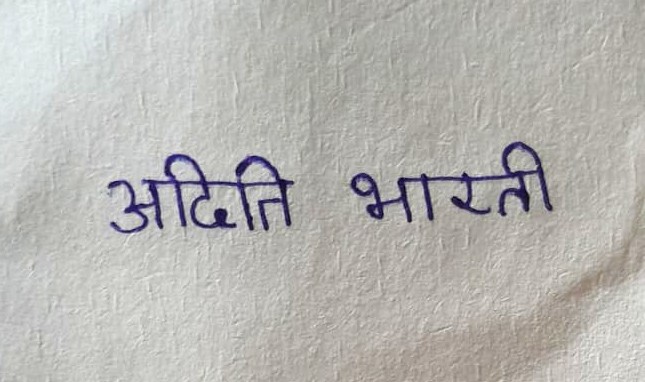 अदिति भारती